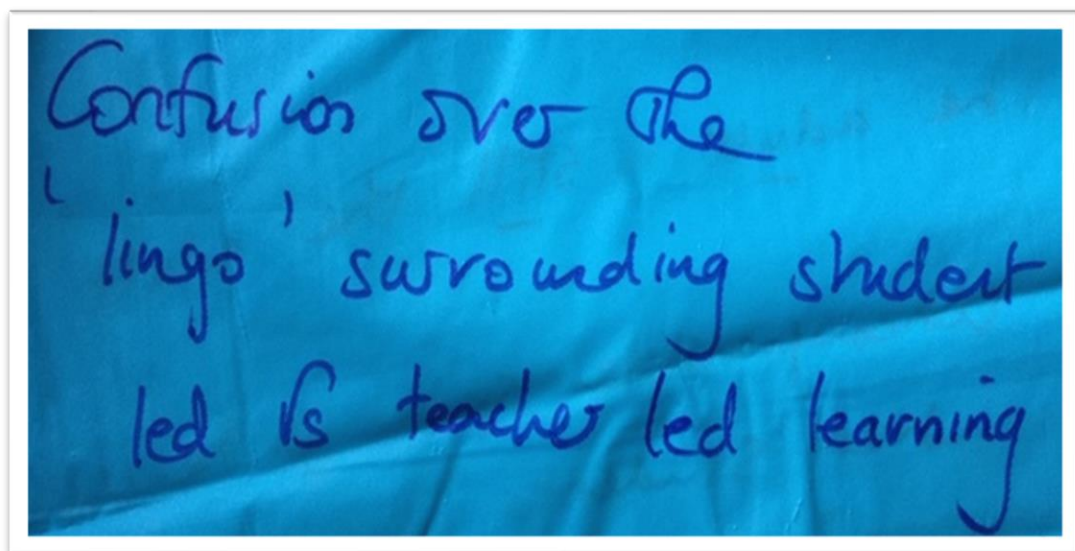 Confusion over the
'lingo' surrounding student
led Vs teacher led learning